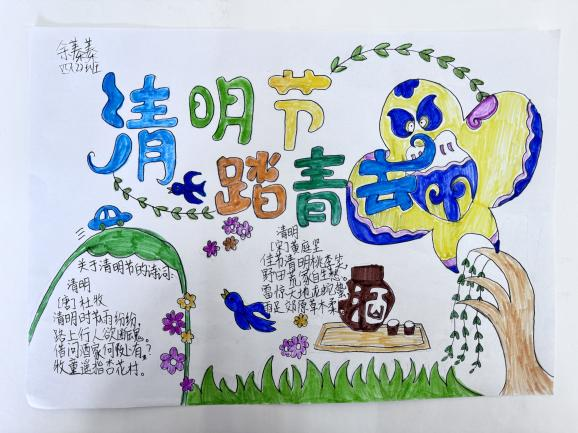 余蓁蓁
四(2)班
清明节
踏青去
关于清明节的诗词
清明
[唐]杜牧
清明时节雨纷纷,
路上行人欲断魂。
借问酒家何处有?
牧童遥指杏花村。
清明
[宋]黄庭坚
佳节清明桃李笑,
野田荒冢自生愁。
雷惊天地龙蛇蛰,
雨足郊原草木柔
酒